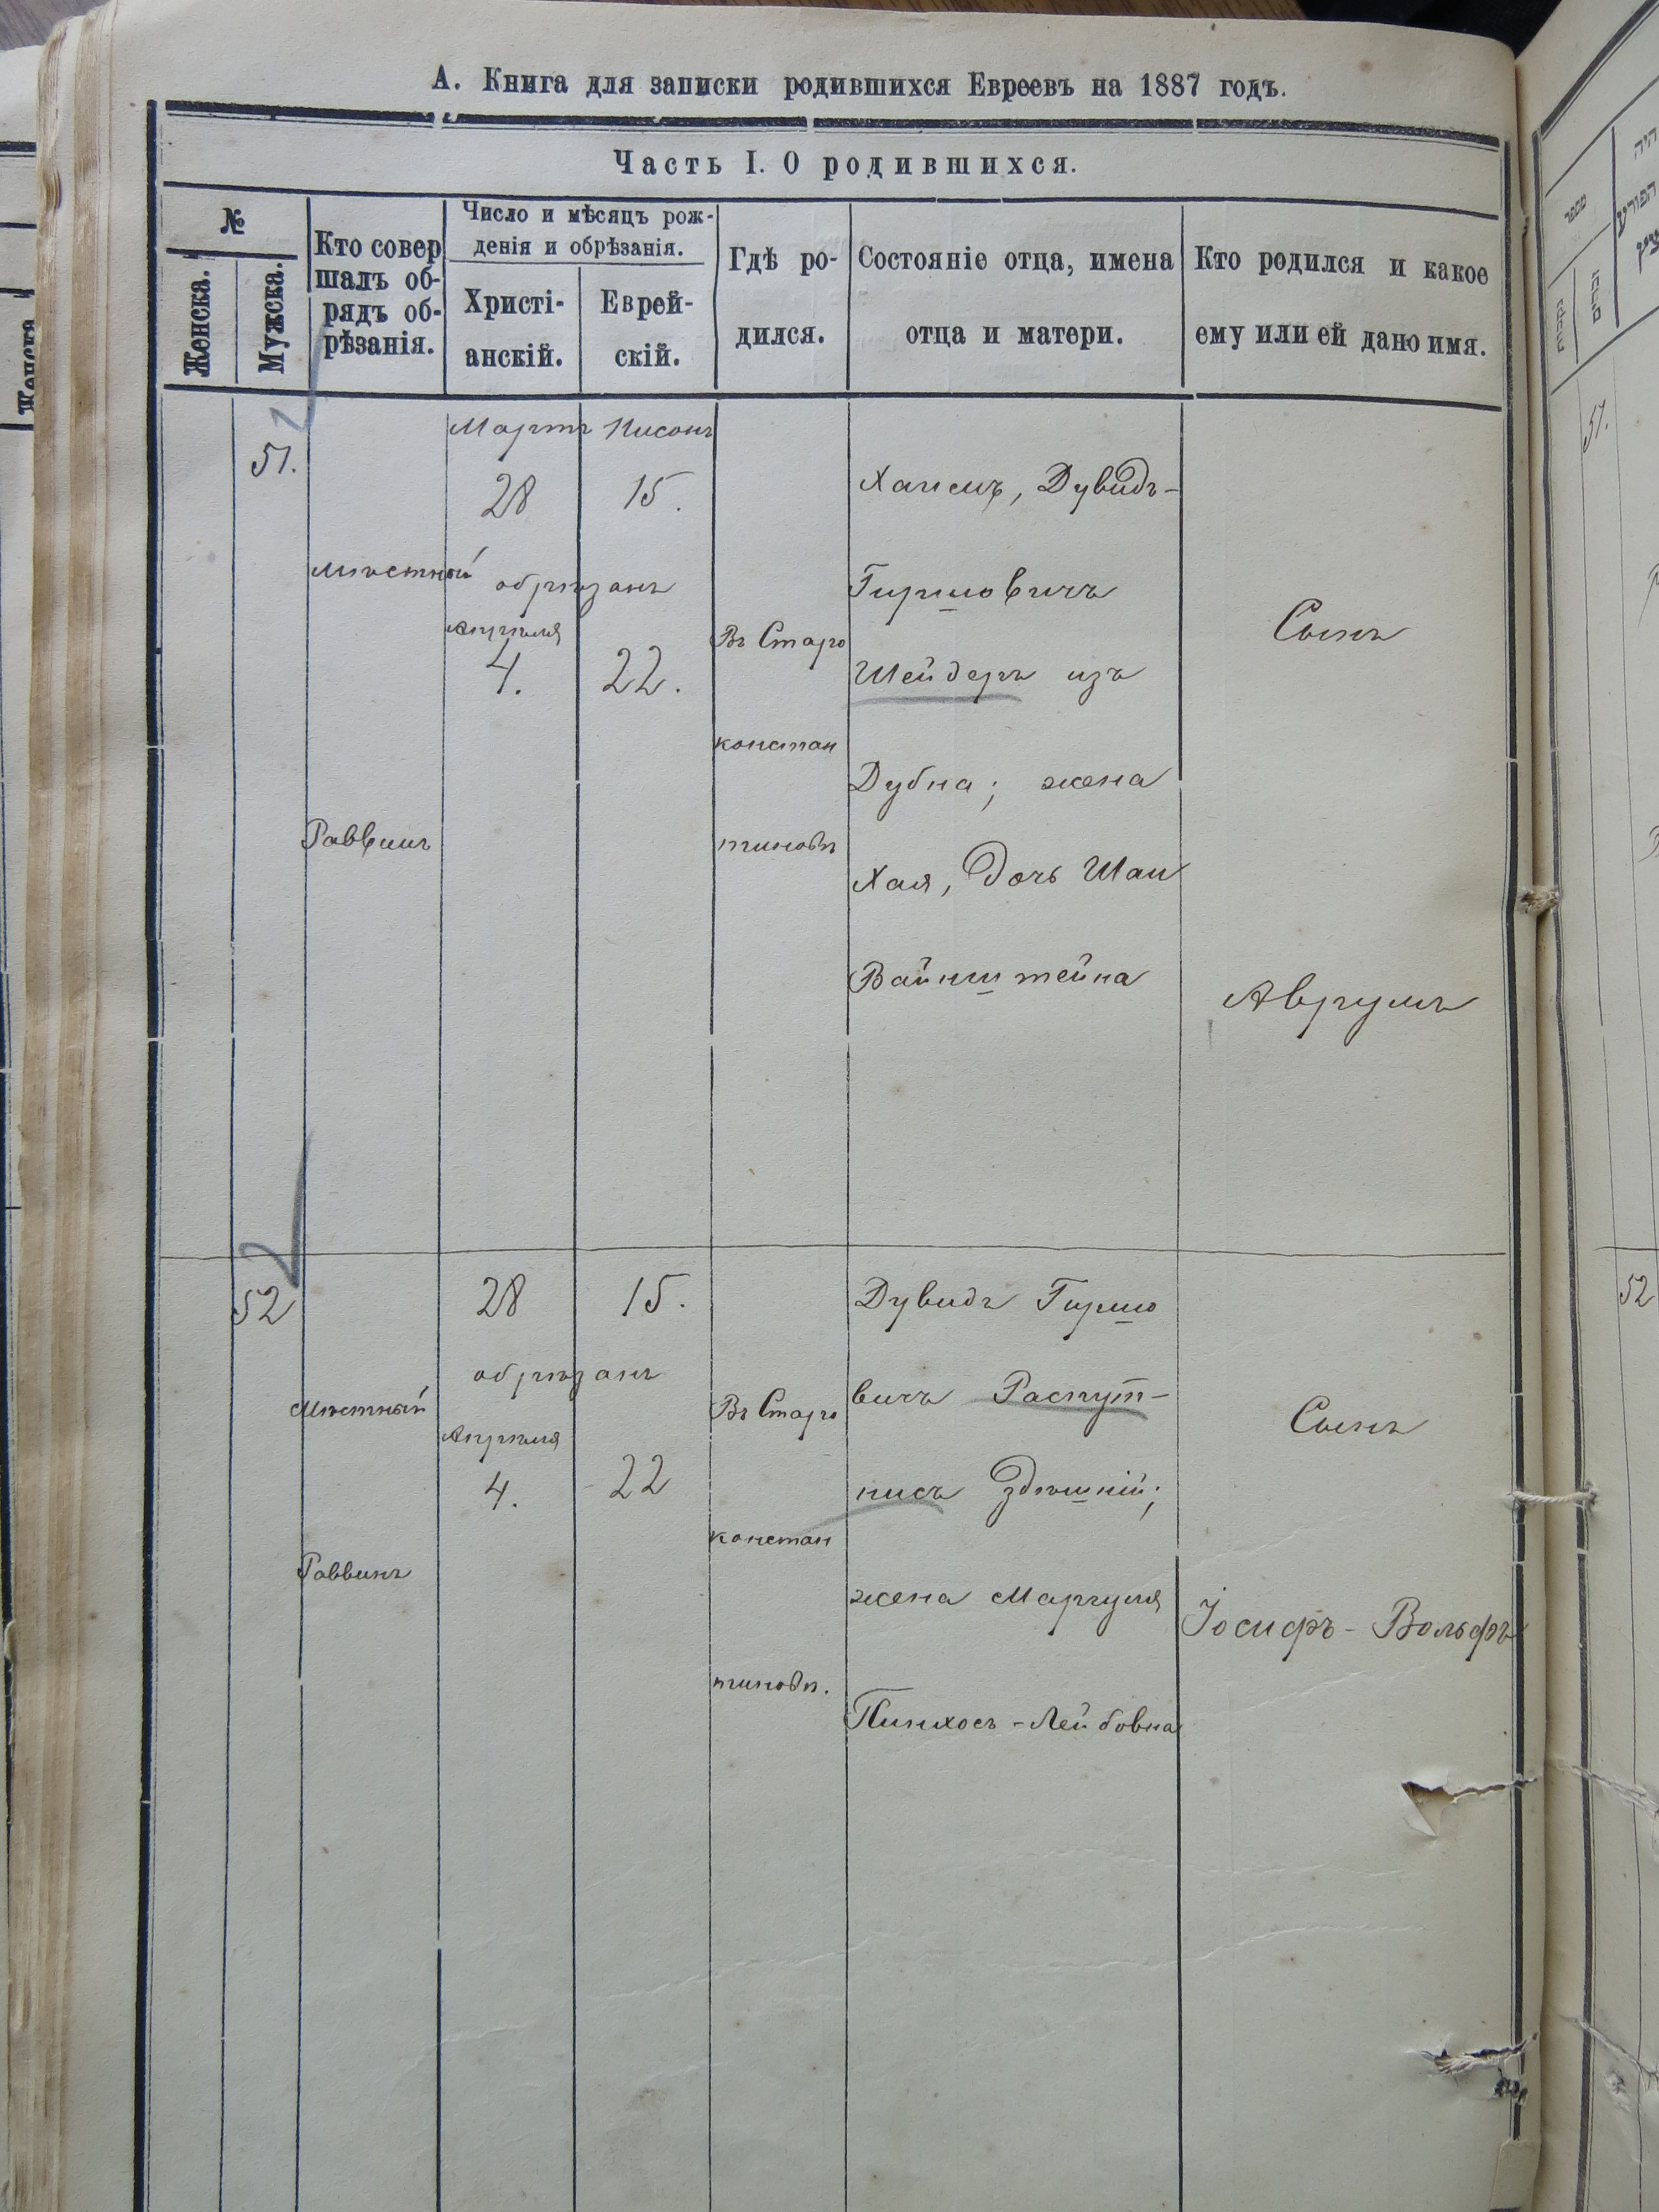 А. Книга для записки родившихся Евреевъ на 1887 годъ.
Часть I. О родившихся.
№
Женска.
Мужска.
Кто совер
шалъ об-
рядъ об-
рѣзанія.
Число и мѣсяцъ рож-
денія и обрѣзанія.
Христі-
анскій.
Еврей-
скій.
Гдѣ ро-
дился.
Состояніе отца, имена
отца и матери.
Кто родился и какое
ему или ей дано имя.
51.
Мѣстный
Раввинъ
Мартъ
28
Нисонъ
15.
обрѣзанъ
Апрѣля
4.
22.
Въ Старо
констан
тиновѣ
Хаимъ, Дувидъ-
Гиршовичъ
Шейдеръ изъ
Дубна; жена
Хая, дочь Шаи
Вайнштейна
Сынъ
Аврумъ
52
Мѣстный
Раввинъ
28
15.
обрѣзанъ
Апрѣля
4.
22
Въ Старо
констан
тиновѣ.
Дувидъ Гиршо
вичъ Распут-
нисъ здѣшній;
жена Маргуля
Пинхосъ-Лейбовна
Сынъ
Іосифъ-Вольфъ
51.
52